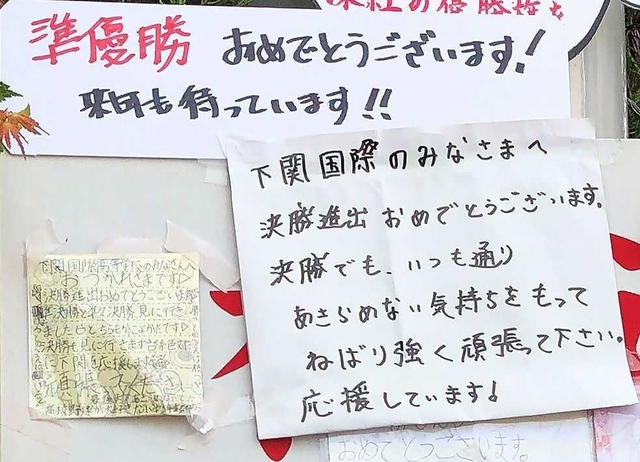 の優勝
準優勝 おめでとうございます!
来年も待っています!!
下関国際のみなさまへ
決勝進出おめでとうございます。
決勝でも、いつも通り
あきらめない気持ちをもって
ねばり強く頑張って下さい。
応援しています!
下関国際高等学校のみなさんへ
おつかれさまです
決勝進出おめでとうございま
決勝 見に行き
ました
決勝も見に行きます
に下関を応援します
おめでとうございます。